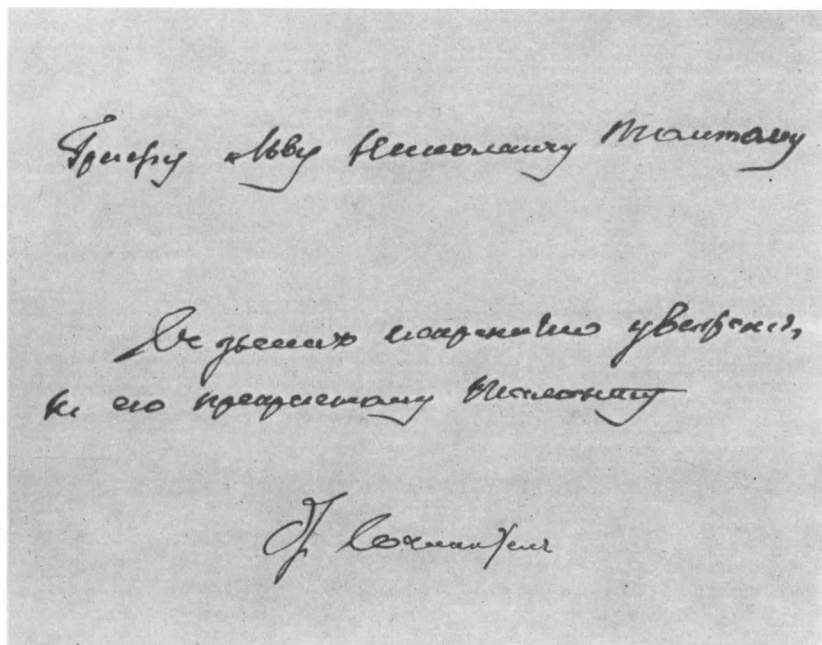 Графу Льву Николаичу Толстому
Въ знакъ искренняго уваженія,
къ его прекрасному таланту